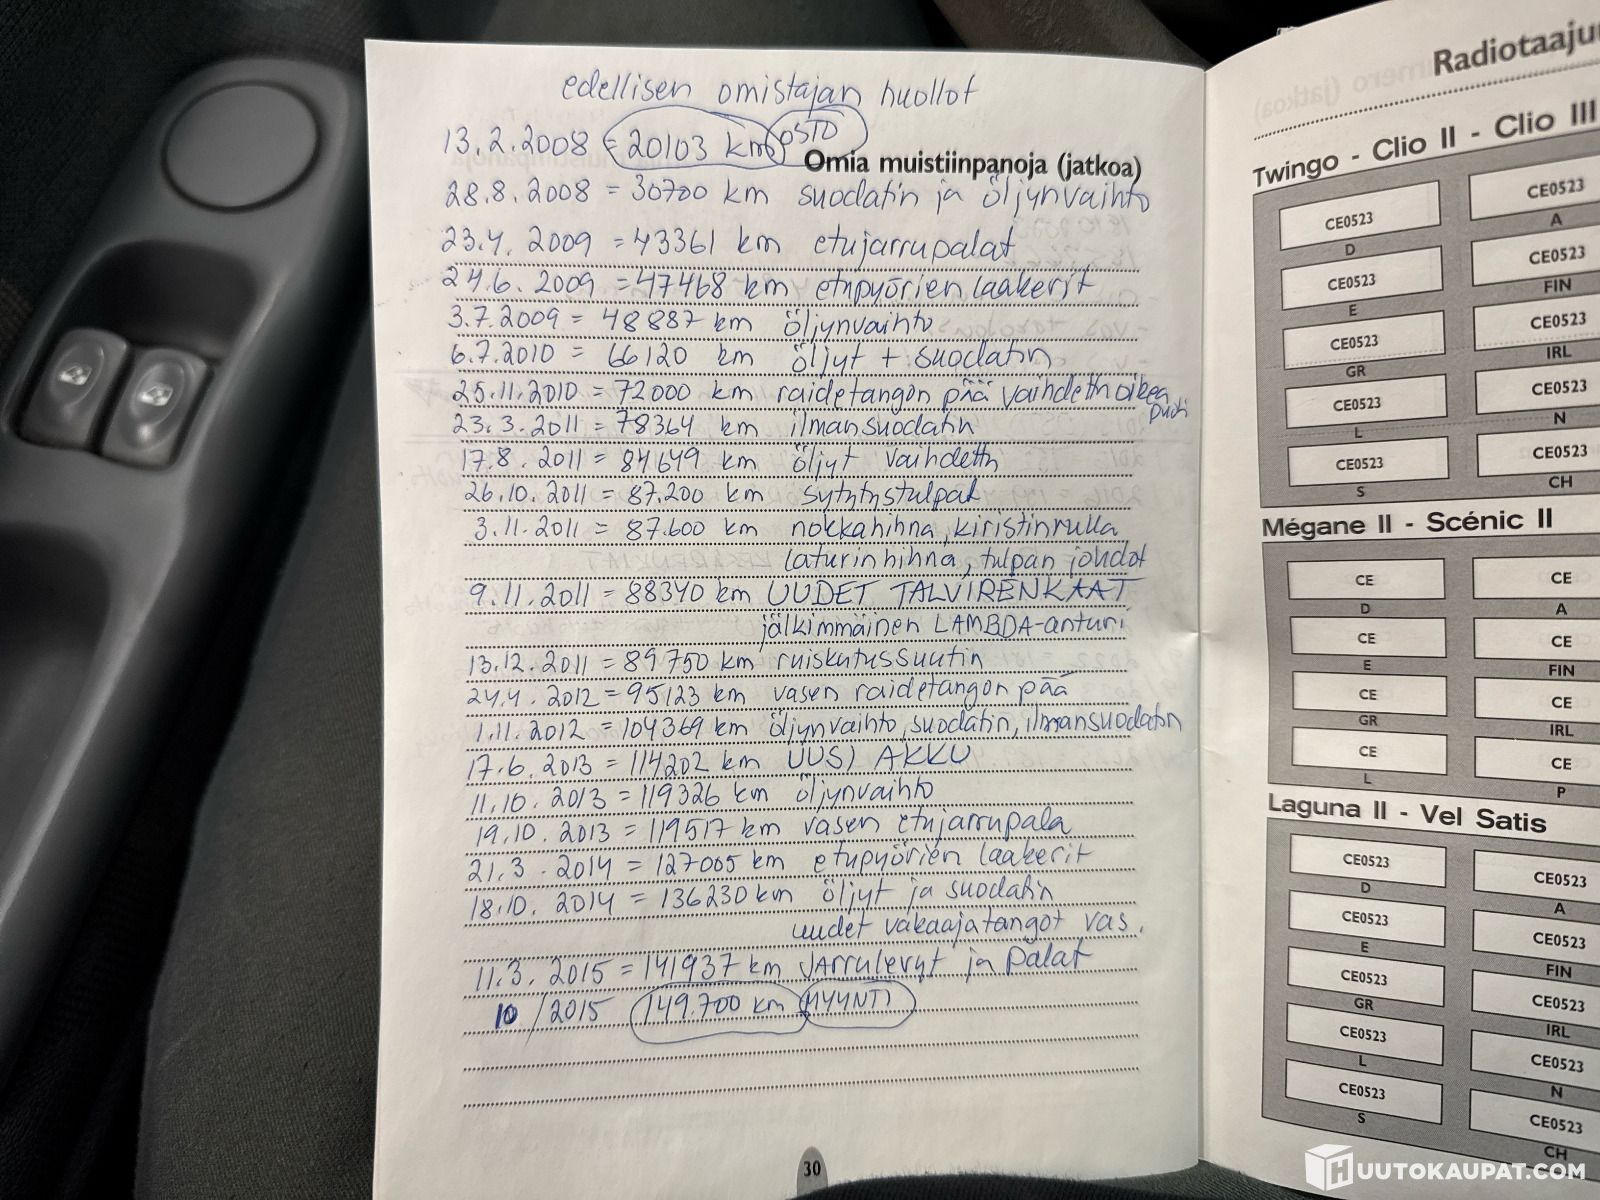 edellisen omistajan huollot
13.2.2008 = 20103 km OSTO
Omia muistiinpanoja (jatkoa)
28.8.2008 = 30700 km suodatin ja öljynvaihto
23.4.2009 = 43361 km etujarrupalat
24.6.2009 = 47468 km etupyörien laakerit
3.7.2009 = 48887 km öljynvaihto
6.7.2010 = 66120 km öljyt + suodatin
25.11.2010 = 72000 km raidetangon pää vaihdettin oikea
puoli
23.3.2011 = 78364 km ilmansuodatin
17.8.2011 = 84649 km öljyt vaihdettin
26.10.2011 = 87.200 km sytytystulpat
3.11.2011 = 87.600 km nokkahihna, kiristinrulla
laturinhihna, tulpan johdot
9.11.2011 = 88340 km UUDET TALVIRENKAAT
jälkimmäinen LAMBDA-anturi
13.12.2011 = 89750 km ruiskutussuutin
24.4.2012 = 95123 km vasen raidetangon pää
1.11.2012 = 104369 km öljynvaihto, suodatin, ilmansuodatin
17.6.2013 = 114202 km UUSI AKKU
11.10.2013 = 119326 km öljynvaihto
19.10.2013 = 119517 km vasen etujarrupala
21.3.2014 = 127005 km etupyörien laakerit
18.10.2014 = 136230 km öljyt ja suodatin
uudet vakaajatangot vas.
11.3.2015 = 141937 km JArrulevyt ja Palat
10/2015 149.700 km MYYNTI
30
Twingo - Clio II - Clio III
CE0523
D
CE0523
A
CE0523
E
CE0523
FIN
CE0523
GR
CE0523
IRL
CE0523
L
CE0523
N
CE0523
S
CE0523
CH
Mégane II - Scénic II
CE
D
CE
A
CE
E
CE
FIN
CE
GR
CE
IRL
CE
L
CE
P
Laguna II - Vel Satis
CE0523
D
CE0523
A
CE0523
E
CE0523
FIN
CE0523
GR
CE0523
IRL
CE0523
L
CE0523
N
CE0523
S
CE0523
CH
HUUTOKAUPAT.COM